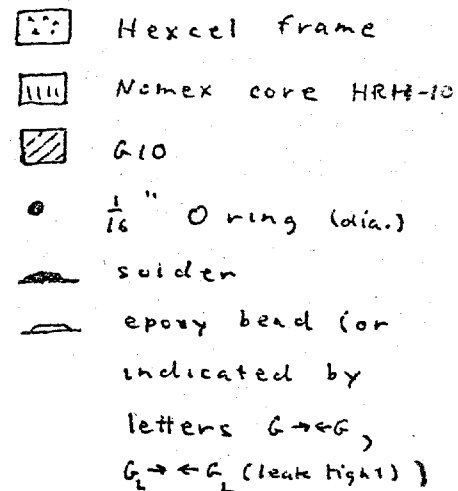 Hexcel frame
Nomex core HRH-10
G10
1/16" O ring (dia.)
solder
epoxy bead (or
indicated by
letters G→←G,
G_L→←G_L (leak tight))